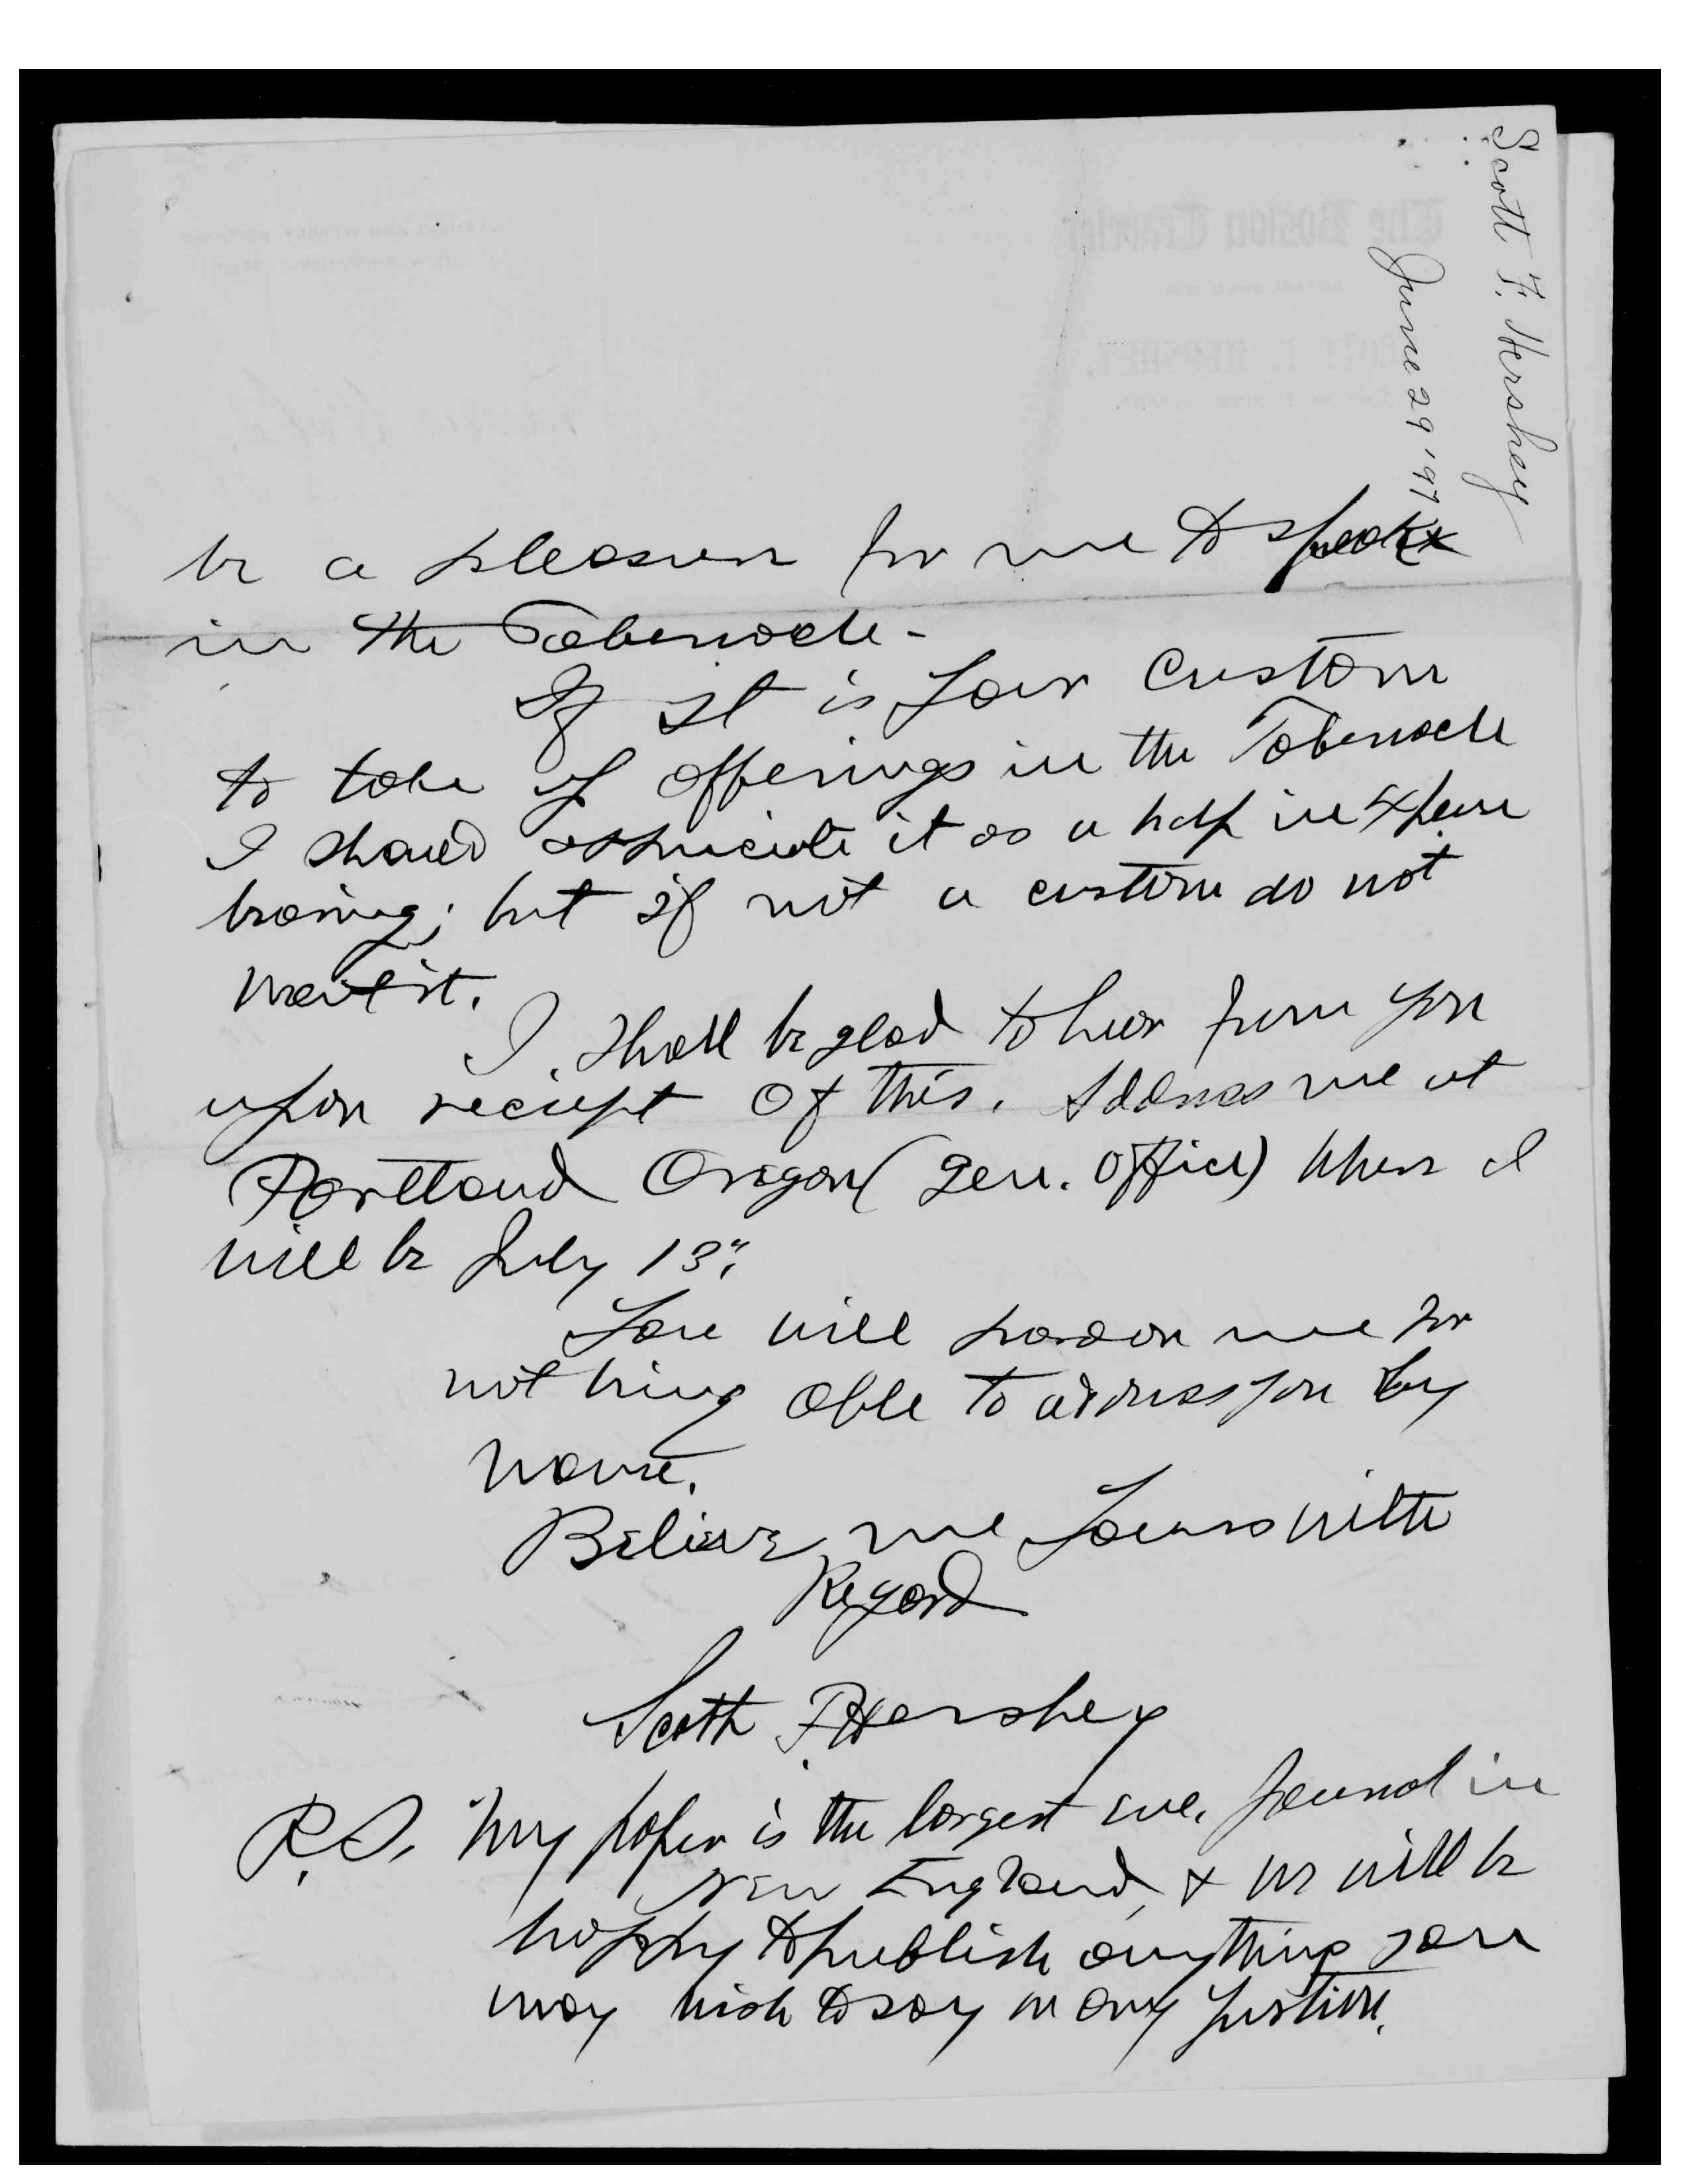 Scott F. Hershey
June 29 '97
be a pleasure for me to speak
in the Tabernacle -
If It is your custom
to take up offerings in the Tabernacle
I should appreciate it as a help in expense
bearing; but if not a custom do not
want it.
I shall be glad to hear from you
upon reciept of this. Address me at
Portland Oregon (gen. office) where I
will be July 13"
You will pardon me for
not being able to address you by
name.
Believe me Yours with
Regard
Scott F. Hershey
P.S. My paper is the largest eve. journal in
New England, & we will be
happy to publish anything you
may wish to say on any question.